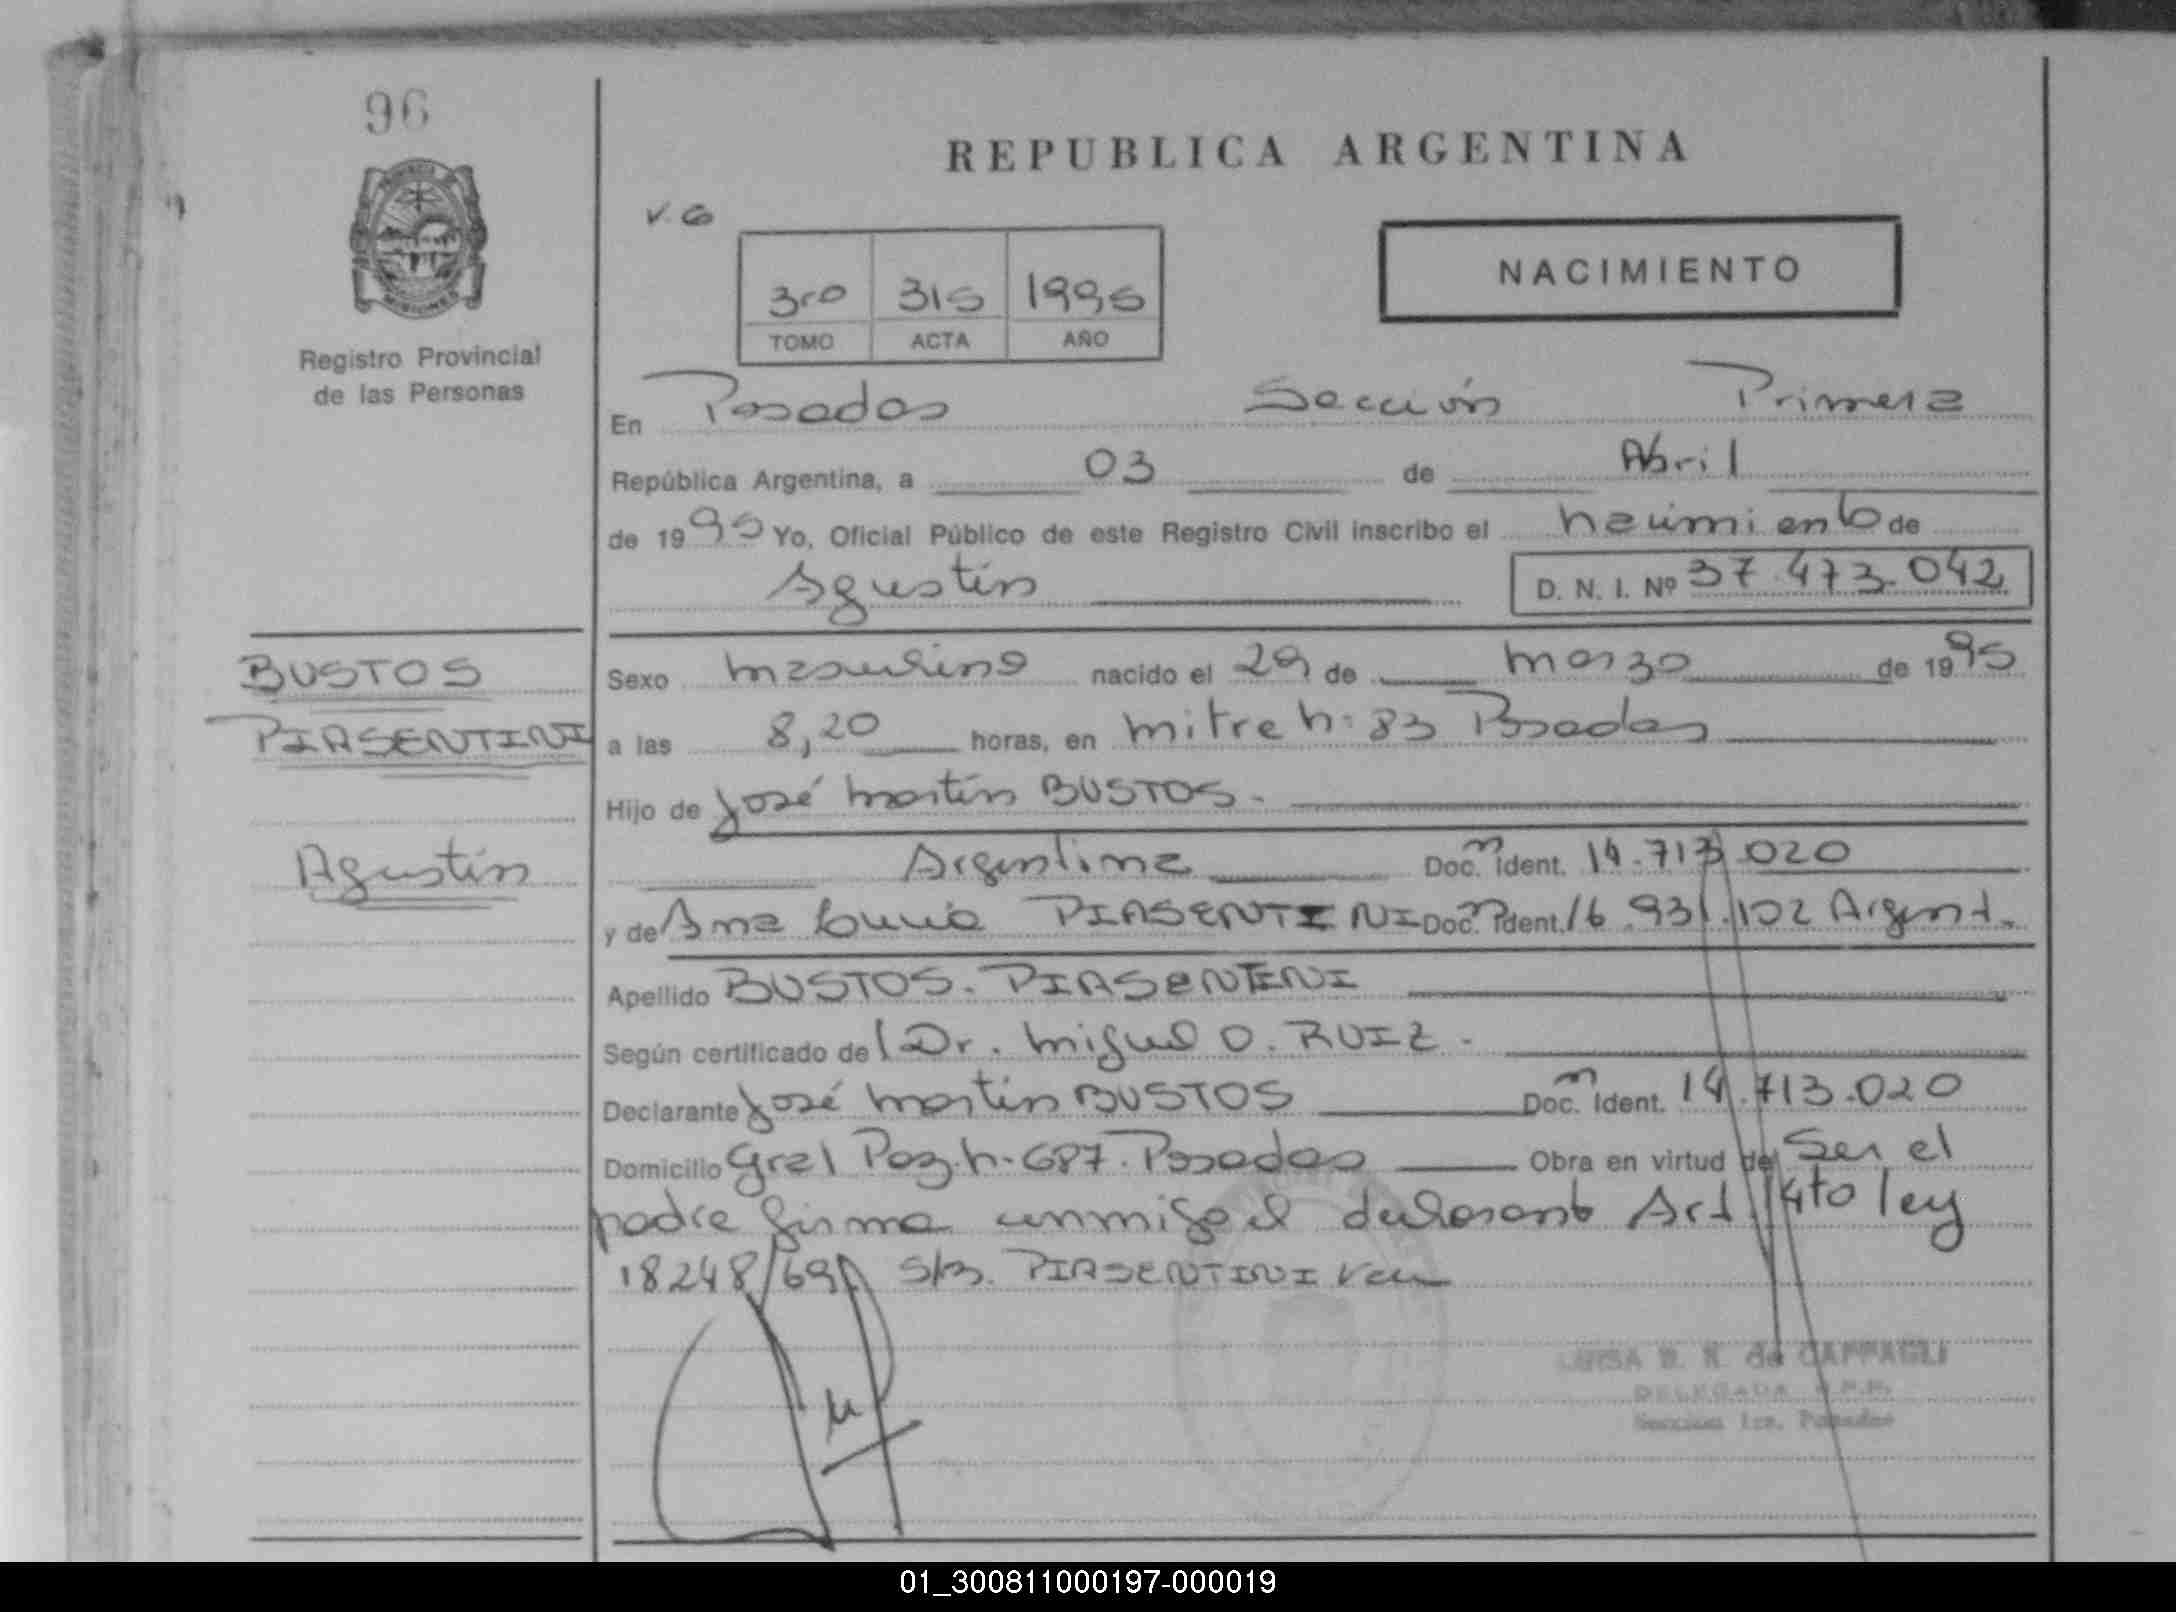 96
REPUBLICA ARGENTINA
V. G
3ro 315 1995
TOMO ACTA AÑO
NACIMIENTO
Registro Provincial
de las Personas
En Posadas Sección Primera
República Argentina, a 03 de Abril
de 1995 Yo, Oficial Público de este Registro Civil inscribo el nacimiento de
Agustín D. N. I. Nº 37.473.042
BUSTOS
PIASENTINI
Agustín
Sexo masculino nacido el 29 de marzo de 1995
a las 8,20 horas, en mitre n: 83 Posadas
Hijo de José martín BUSTOS.
Argentina Doc. Ident. 14.713.020
y de Ana PIASENTINI Doc. Ident. 16.931.102 Argent.
Apellido BUSTOS. PIASENTINI
Según certificado del Dr. miguel O. RUIZ.
Declarante José martín BUSTOS Doc. Ident. 14.713.020
Domicilio Gral Paz. n. 687. Posadas Obra en virtud de Ser el
padre firma conmigo el declarante Art 4to ley
18248/69 S/B. PIASENTINI Vale
LUISA B. N. de CAFFAGLI
DELEGADA R.P.P.
Sección 1ra. Posadas
01_300811000197-000019